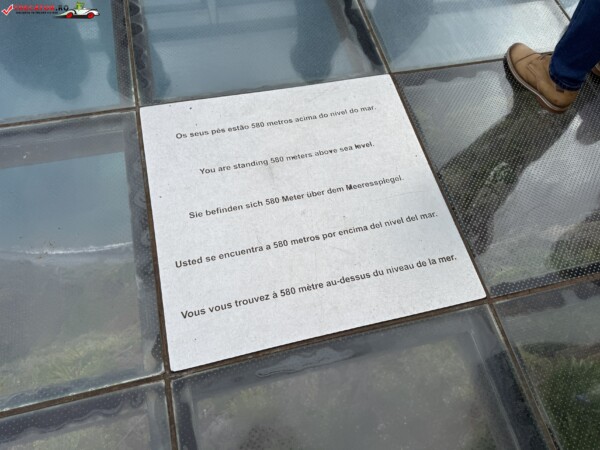 Os seus pés estão 580 metros acima do nível do mar.
You are standing 580 meters above sea level.
Sie befinden sich 580 Meter über dem Meeresspiegel.
Usted se encuentra a 580 metros por encima del nivel del mar.
Vous vous trouvez à 580 mètre au-dessus du niveau de la mer.